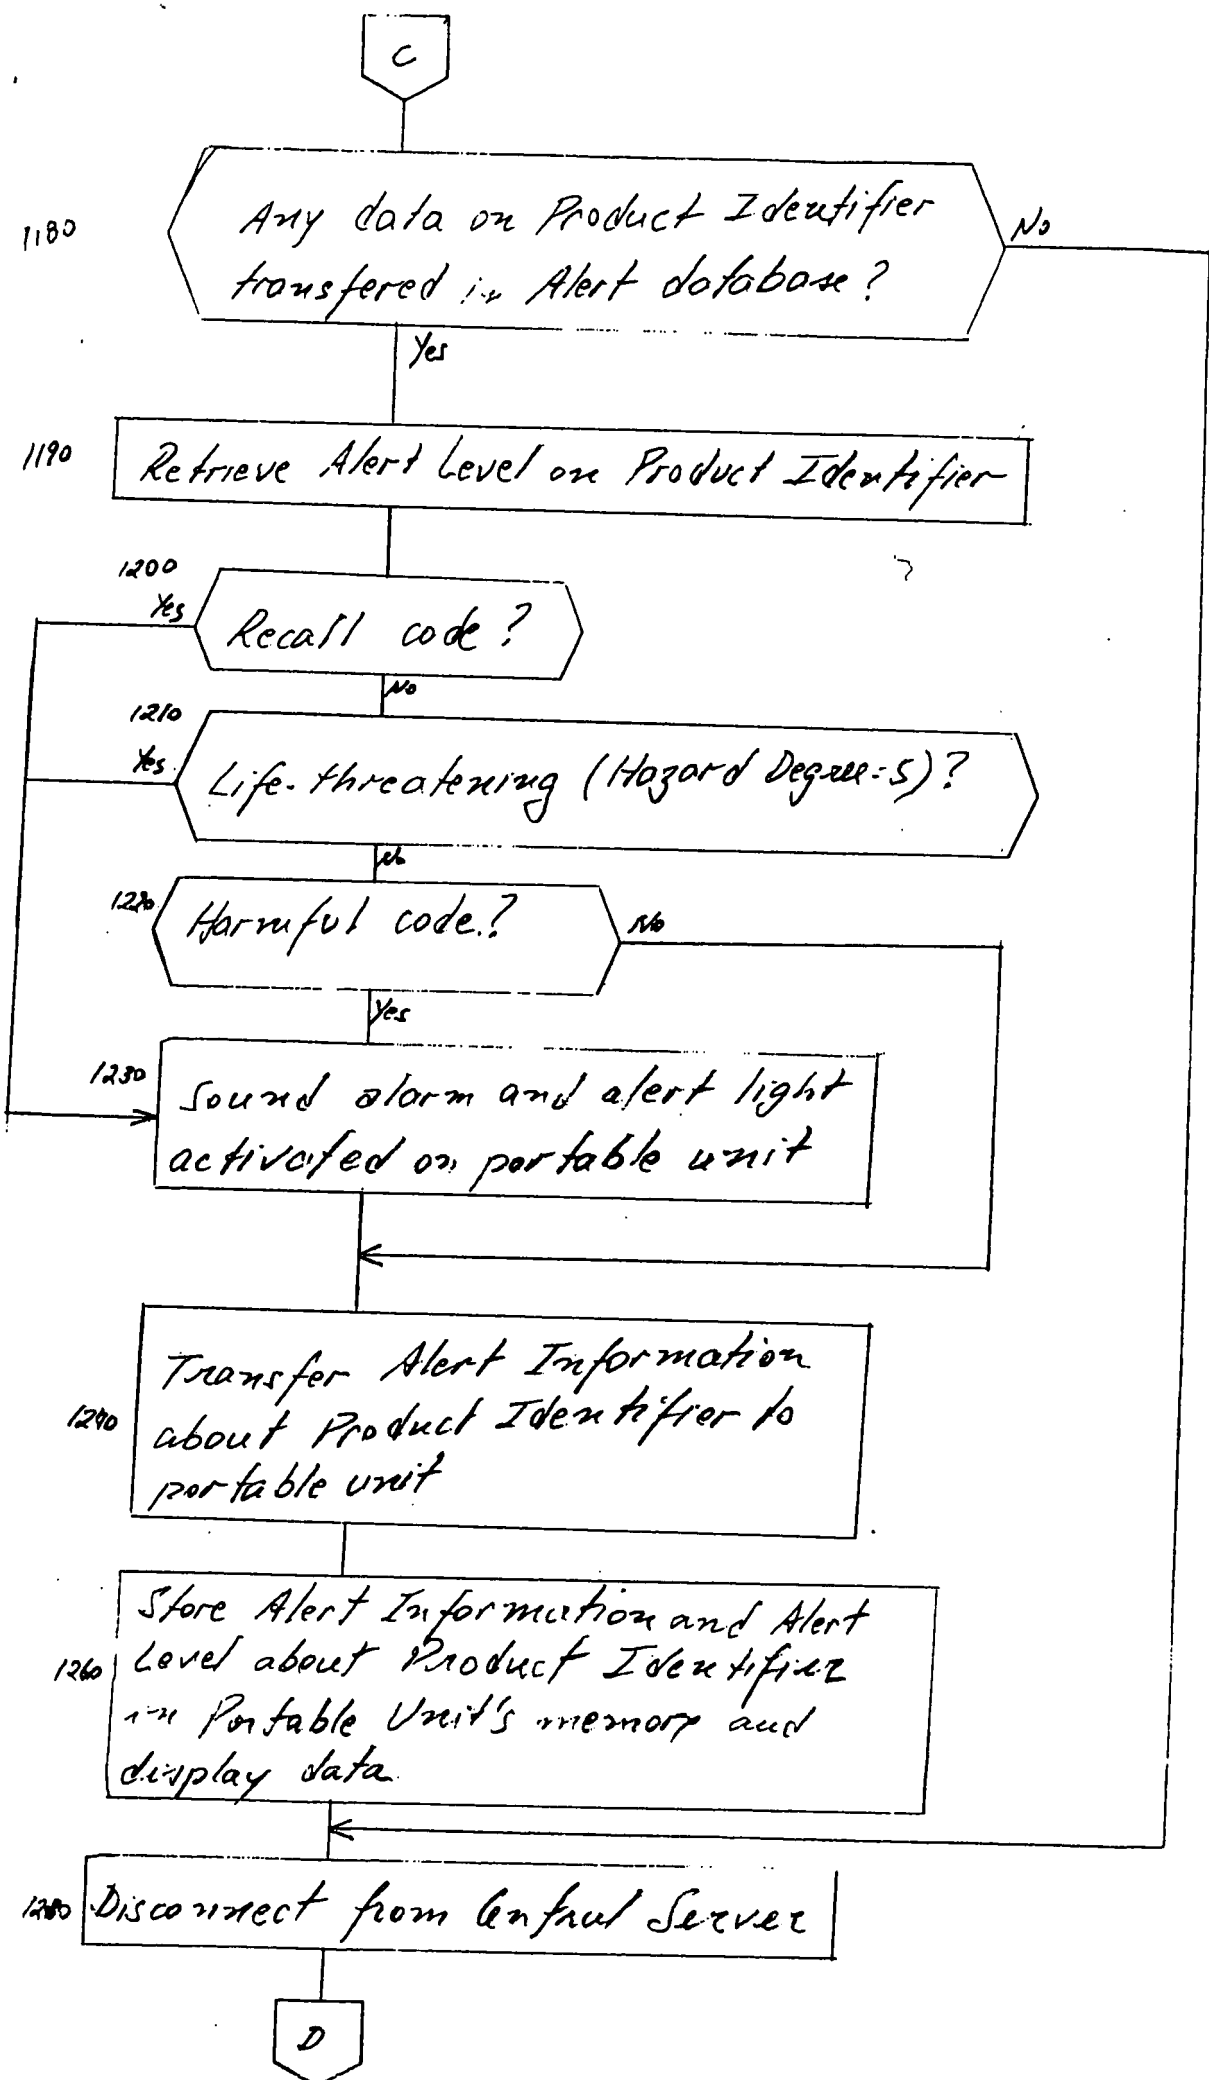 C
1180
Any data on Product Identifier
transfered in Alert database?
No
Yes
1190
Retrieve Alert Level on Product Identifier
1200
Yes
Recall code?
No
1210
Yes
Life-threatening (Hazard Degree=5)?
No
1220
Harmful code?
No
Yes
1230
Sound alarm and alert light
activated on portable unit
1240
Transfer Alert Information
about Product Identifier to
portable unit
1260
Store Alert Information and Alert
Level about Product Identifier
in Portable Unit's memory and
display data
1280
Disconnect from Central Server
D